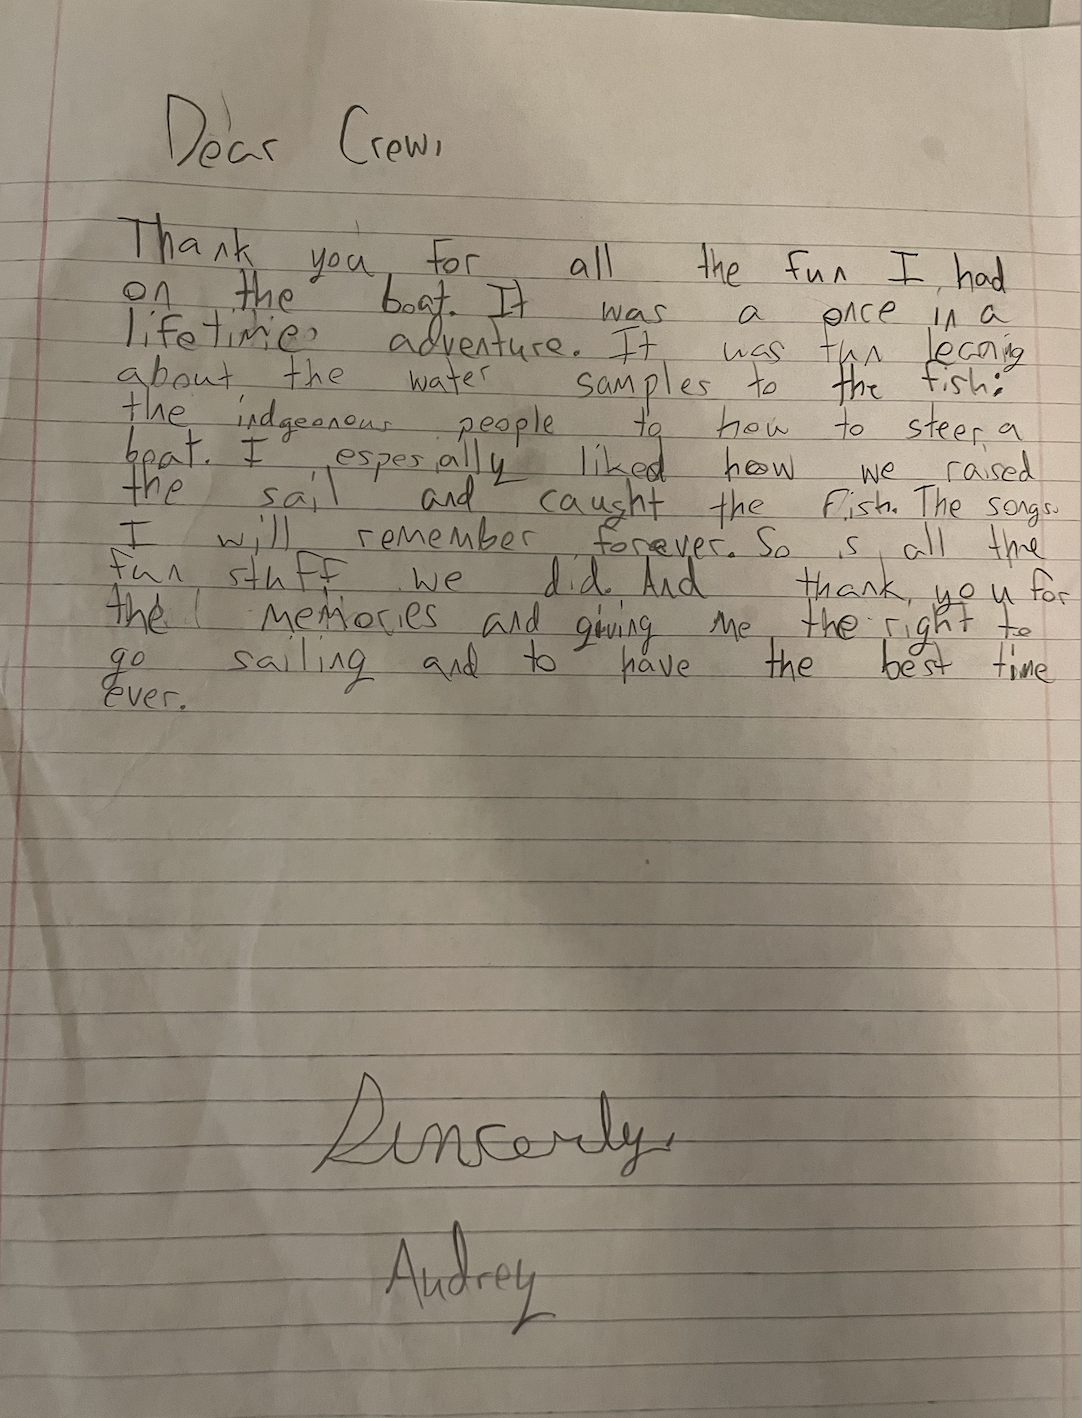 Dear Crew,
Thank you for all the fun I had
on the boat. It was a once in a
lifetime adventure. It was fun learnig
about the water samples to the fish;
the indgeonous people to how to steer a
boat. I espesially liked how we raised
the sail and caught the fish. The songs
I will remember forever. So is all the
fun stuff we did. And thank you for
the memories and giving me the right to
go sailing and to have the best time
ever.
Sincerly,
Audrey